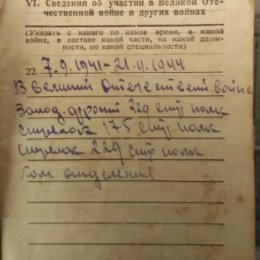 VI. Сведения об участии в Великой Оте-
чественной войне и других войнах
(Указать с какого по какое время, в какой
войне, в составе какой части, на какой долж-
ности, по какой специальности)
22. 7.9.1941-21.4.1944
В Великий Отечествет войне
Запад. фронт 229 стр полк
стрелок 175 стр полк
стрелок 229 стр полк
ком отделения